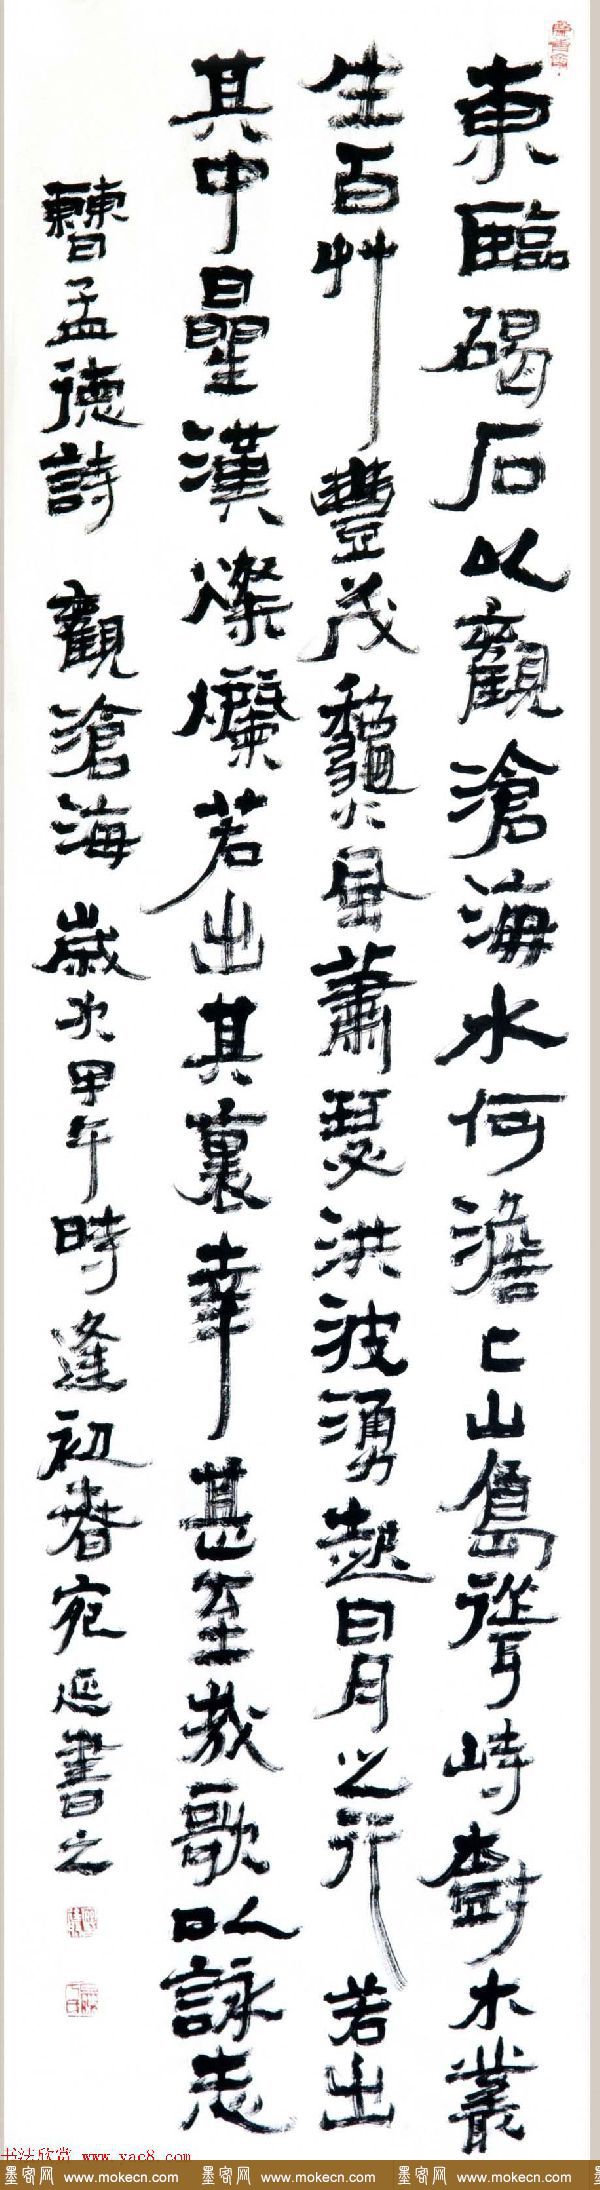 東臨碣石以觀滄海水何澹〻山島聳峙樹木叢
生百艸豐茂龝風蕭瑟洪波湧起日月之行若出
其中曐漢燦爛若出其裏幸甚至哉歌以詠志
曹孟德詩 觀滄海 歲次甲午時逢初春宛延書之
书法欣赏 www.yac8.com
墨客网 www.mokecn.com 墨客网 www.mokecn.com 墨客网 www.mokecn.com